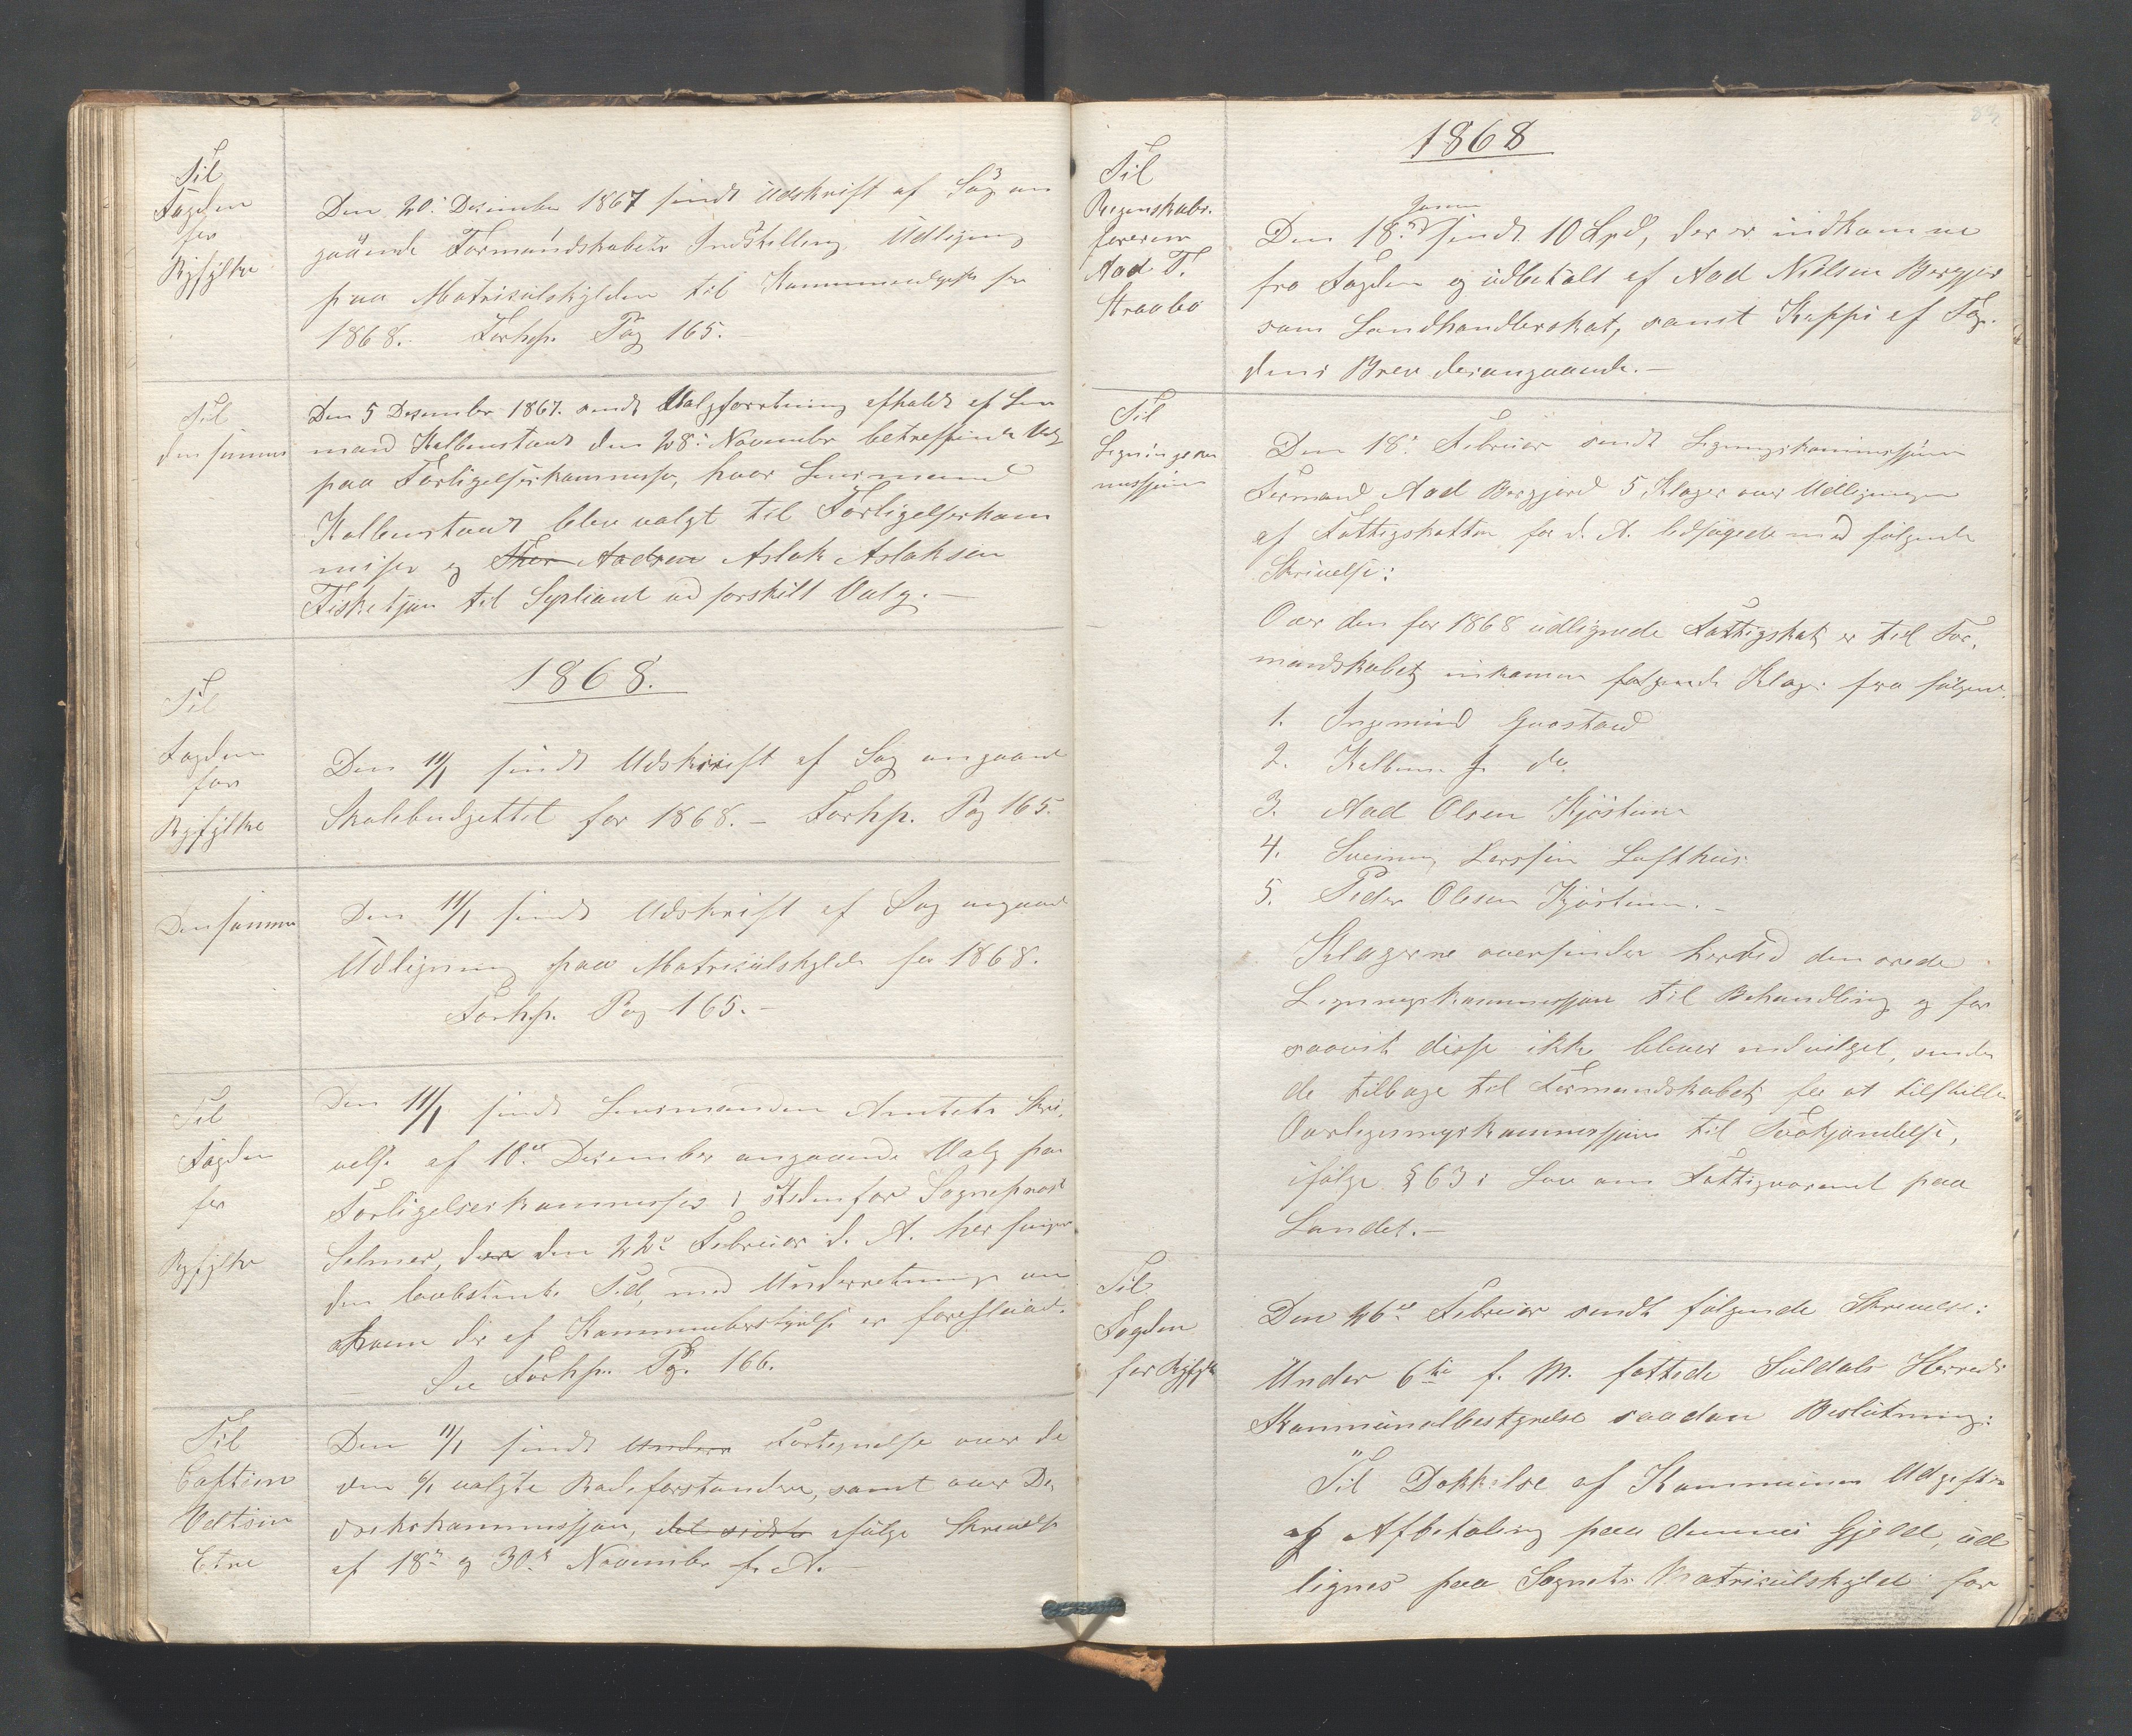 Til
Fogden
for
Ryfylke
Den 20de Desember 1867 sendt Udskrift af Sag an
gaaende Formandskabets Indstilling Udligning
paa Matrikulskylden til Kommuneudgift for
1868. Forhp. Pag 165.
Til
den samme
Den 5 Desember 1867. sendt Valgforretning afholdt af Lens
mand Kolbenstvedt den 28de November betreffende Valg
paa Forligelseskommisær, hvor Lensmand
Kolbenstvedt blev valgt til Forligelseskom
misær og Aslak Aslaksen
Fisketjøn til Supliant ved forskilt Valg.—
1868.
Til
Fogden
for
Ryfylke
Den 11/1 sendt Udskrift af Sag angaaende
Skolebudgettet for 1868. – Forhp. Pag 165.
Den samme
Den 11/1 sendt Udskrift af Sag angaaende
Udligning paa Matrikulskylden for 1868.
Forhp. Pag 165.–
Til
Fogden
for
Ryfylke
Den 11/1 sendt Lensmanden Amtets Skri,
velse af 10de Desember angaaende Valg paa
Forligelseskommissær i stedenfor Sogneprest
Selmer, der den 22de Februar d. A. har
den lovbestemte Tid, med Underretning om
hvem der af Kommunebestyrelse er foreslaaet.
See Forhp. Pag. 166.
Til
Captein
Veltsin
Etne
Den 11/1 sendt Fortegnelse over de
den 6/1 valgte Rodeforstandere, samt over Di
strikskommissjon, det sidste ifølge Skrivelse
af 18de og 30te November f. A.
1868
Til
Regenskabs.
føreren
Aad T.
Straabø
Januar
Den 18de sendt 10 Spd, der er indkomne
fra Fogden og udbetalt af Aad Nielsen Bergjord
som Landhandlerskat, samt Koppi af Fog-
dens Brev desangaaende.—
Til
Ligningskom
missjonen
Den 18de Februar sendt Ligningskommissjonens
Formand Aad Bergjord 5 Klager over Udligningen
af Fattigskatten for d. A. ledsagede med følgende
Skrivelse:
Over den for 1868 udlignede Fattigskat er til For,
mandskabet inkommen følgende Klager fra følgende
1. Ingemund Gvastad
2. Kolben do
3. Aad Olsen Kjøstum
4. Sveinung Larssen Lofthus
5. Peder Olesen Kjøstum.–
Klagerne oversendes herved den ærede
Ligningskommissjon til Behandling og for
saavit disse ikke bliver indvilget, sendes
de tilbage til Formandskabet for at tilstilles
Overligningskommissjonen til Paakjendelse,
ifølge § 63 i Lov om Fattigvæsenet paa
Landet.—
Til
Fogden
for Ryfylke
Den 26de Februar sendt følgende Skrivelse:
Under 6te f. M. fattede Suldals Herreds
Kommunalbestyrelse saadan Beslutning:
"Til Dækkelse af Kommunens Udgifter
og Afbetaling paa dennes Gjeld, ud
lignes paa Sognets Matrikulskyld for